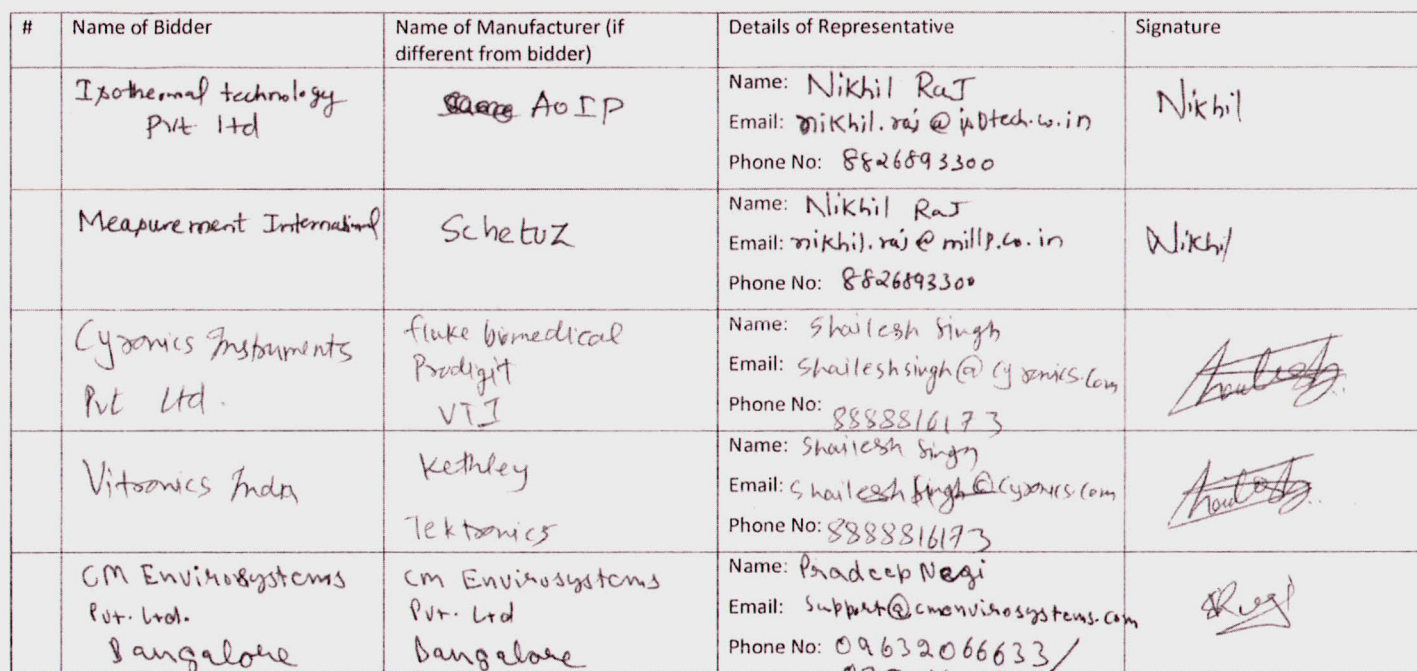 # Name of Bidder Name of Manufacturer (if different from bidder) Details of Representative Signature
Isothermal technology
Pvt ltd
AOIP
Name: Nikhil Raj
Email: nikhil.raj@isotech.co.in
Phone No: 8826893300
Nikhil
Measurement International
Schetuz
Name: Nikhil Raj
Email: nikhil.raj@millp.co.in
Phone No: 8826893300
Nikhil
Cyronics Instruments
Pvt Ltd.
fluke biomedical
Prodigit
VTI
Name: Shailesh Singh
Email: Shaileshsingh@cyronics.com
Phone No: 8888816173
Vitronics India
Kethley
Tektronics
Name: Shailesh Singh
Email: Shailesh Singh@Cyronics.com
Phone No: 8888816173
CM Envirosystems
Pvt. Ltd.
Bangalore
CM Envirosystems
Pvt. Ltd
Bangalore
Name: Pradeep Negi
Email: Support@cmenvirosystems.com
Phone No: 09632066633/